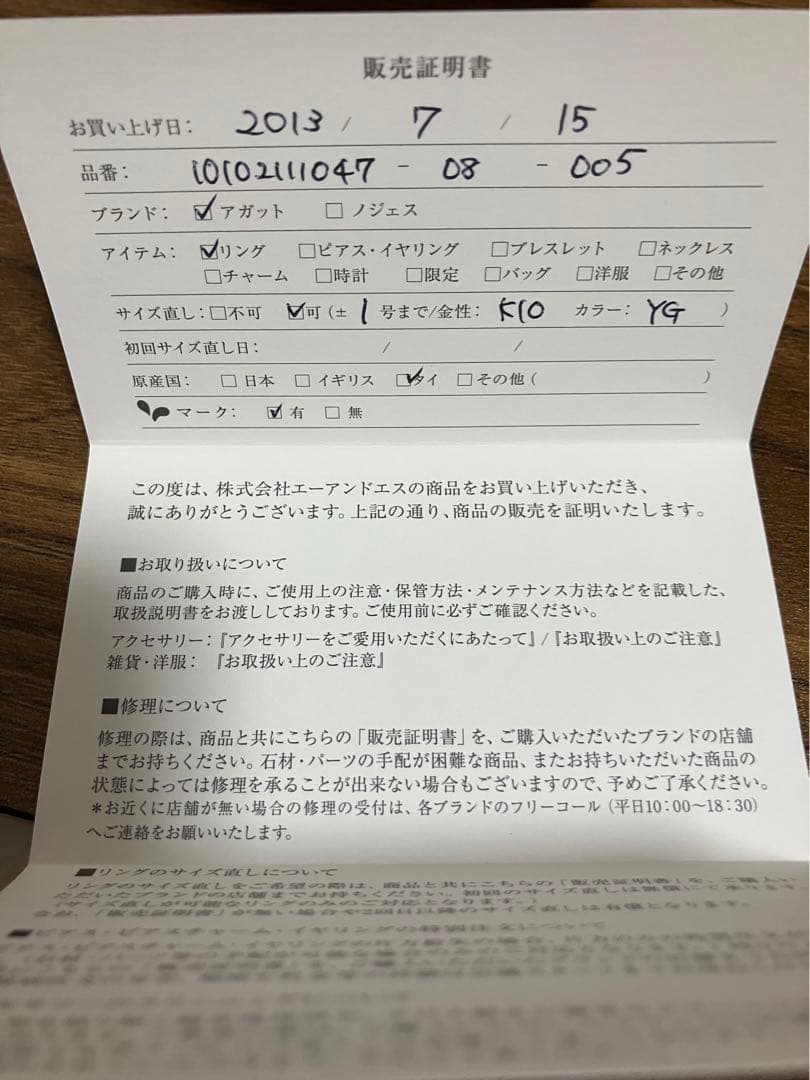 販売証明書
お買い上げ日： 2013 / 7 / 15
品番： 10102111047 - 08 - 005
ブランド： ☑アガット □ノジェス
アイテム： ☑リング □ピアス・イヤリング □ブレスレット □ネックレス
□チャーム □時計 □限定 □バッグ □洋服 □その他
サイズ直し：□不可 ☑可（± 1 号まで/金性： K10 カラー： YG ）
初回サイズ直し日： / /
原産国： □日本 □イギリス ☑タイ □その他（ ）
マーク： ☑有 □無
この度は、株式会社エーアンドエスの商品をお買い上げいただき、
誠にありがとうございます。上記の通り、商品の販売を証明いたします。
■お取り扱いについて
商品のご購入時に、ご使用上の注意・保管方法・メンテナンス方法などを記載した、
取扱説明書をお渡ししております。ご使用前に必ずご確認ください。
アクセサリー：『アクセサリーをご愛用いただくにあたって』/『お取扱い上のご注意』
雑貨・洋服： 『お取扱い上のご注意』
■修理について
修理の際は、商品と共にこちらの「販売証明書」を、ご購入いただいたブランドの店舗
までお持ちください。石材・パーツの手配が困難な商品、またお持ちいただいた商品の
状態によっては修理を承ることが出来ない場合もございますので、予めご了承ください。
＊お近くに店舗が無い場合の修理の受付は、各ブランドのフリーコール（平日10：00〜18：30）
へご連絡をお願いいたします。
■リングのサイズ直しについて
リングのサイズ直しをご希望の際は、商品と共にこちらの「販売証明書」を、ご購入い
ただいたブランドの店舗までお持ちください。初回のサイズ直しは無償にて承ります。
（サイズ直しが可能なリングのみのご対応となります。）
なお、「販売証明書」が無い場合や2回目以降のサイズ直しは有償となります。
■ピアス・ピアスチャーム・イヤリングの特別注文について